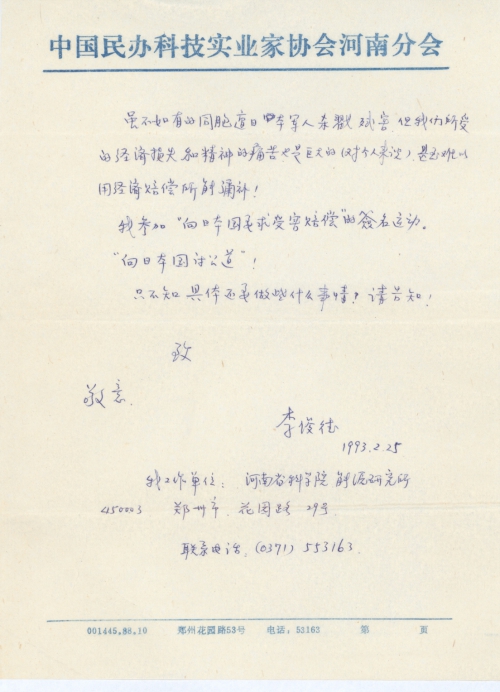 中国民办科技实业家协会河南分会
虽不如有的同胞遭日本军人杀戮残害,但我们所受
的经济损失和精神的痛苦也是巨大的(对个人来说),甚至难以
用经济赔偿所能弥补!
我参加“向日本国要求受害赔偿”的签名运动。
“向日本国讨公道”!
只不知具体还要做些什么事情?请告知!
致
敬意
李俊德
1993.2.25
我工作单位:河南省科学院能源研究所
450003 郑州市 花园路 29号
联系电话:(0371)553163
001445.88.10 郑州花园路53号 电话:53163 第 页